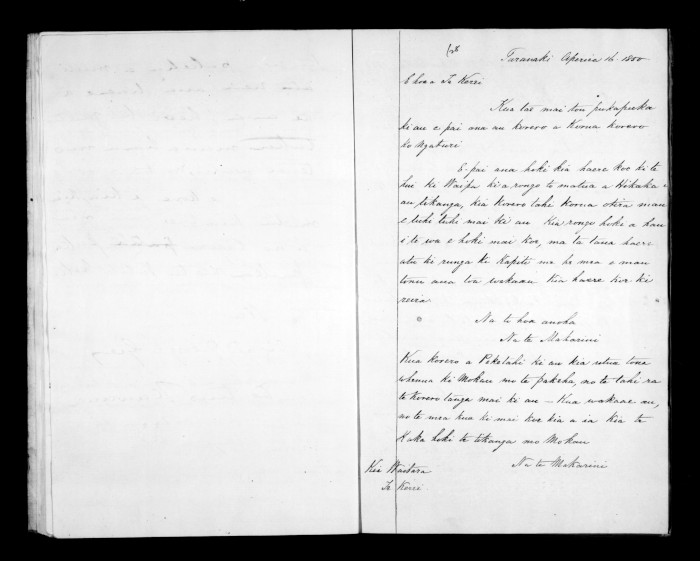 Taranaki Aperira 16 1850
E hoa a Te Kerei
Kua tae mai tou pukapuka
ki au e pai ana au korero a Korua korero
ko Ngaburi
E pai ana hoki kia haere koe ki te
hui ki Waipa kia rongo te matua a Hikaka
au tikanga, kia korero tahi korua otira mau
e tuhi tuhi mai ki au. Kia rongo hoki a hau
i te wa e hoki mai koe, ma ta taua haere
atu ki runga ki Kapiti me he mea e mau
tonu ana tou wakaaro kia haere koe ki
reira
Na to hoa aroha
Na te Makarini
Kua korero a Peketahi ki au kia utua tona
whenua ki Mokau mo te pakeha, no te tahi ra
te korero tanga mai ki au — Kua wakaae au,
no te mea kua ki mai koe kia a ia kia te
Kaka hoki te tikanga mo Mokau
Na te Makarini
Kei Waitara
Te Kerei